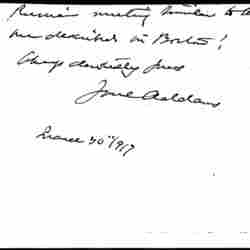 Russian meeting similar to the
one described in Boston!
Always devotedly yours
Jane Addams
March 30" 1917